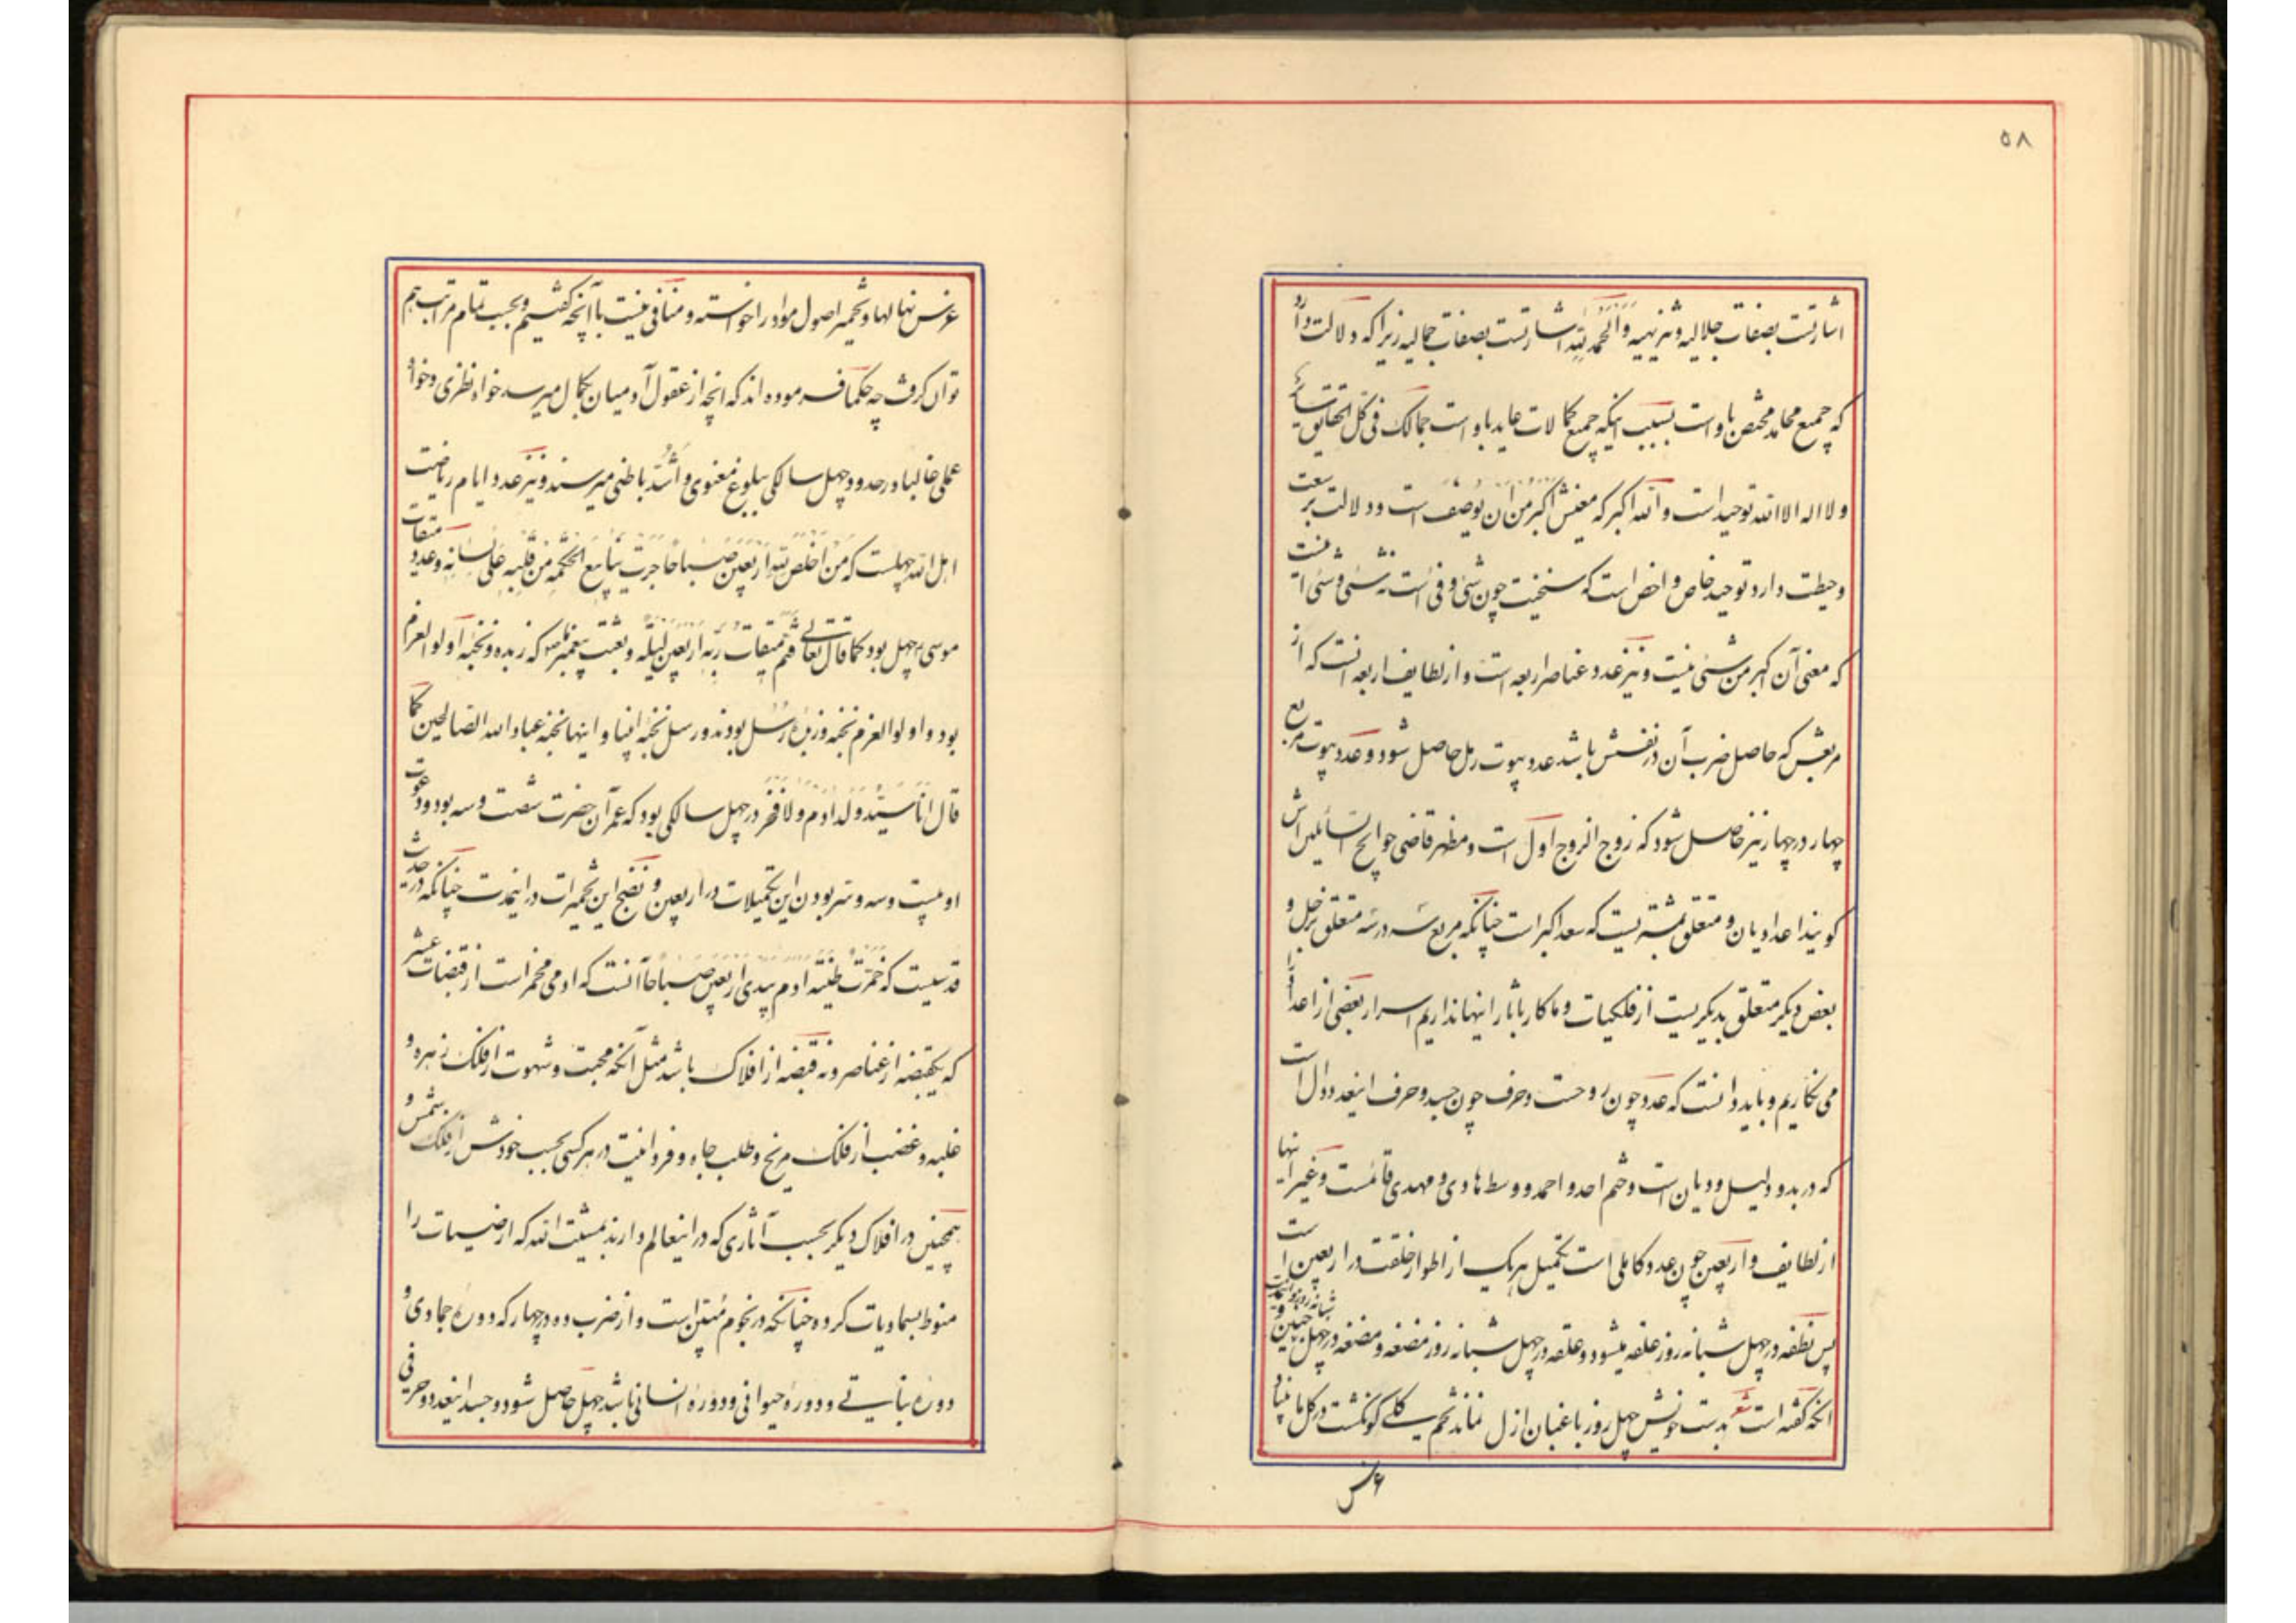 ۵۸
اشارتست بصفات جلالیه و تنزیهیه وَالْحَمْدُ لِلّهِ اشارتست بصفات جمالیه زیرا که دلالت دارد
که جمیع محامد مختص باو است بسبب اینکه جمیع کمالات عاید باو است جمالک فی کل الحقایق سائر
و لا اله الا الله توحید است و الله اکبر که معنیش اکبر من ان یوصف است و دلالت بر سعت
و حیطت دارد توحید خاص و اخص است که سنخیت چون شیٔ و فیٔ است نه شیٔ و شیٔ است
که معنی آن اکبر من شیٔ نیست و نیز عدد عناصر اربعه است و از لطایف اربعه انست که از
مربعش که حاصل ضرب آن در نفسش باشد عدد بیوت رمل حاصل شود و عدد بیوت مربع
چهار در چهار نیز حاصل شود که زوج الزوج اول است و مظهر قاضی حوایج السائلین اش
کویند اعدادیان و متعلق بمشتریست که سعد اکبر است چنانکه مربع سه در سه متعلق بزحل و
بعض دیکر متعلق بدیکریست از فلکیات و ما کار باثار اینها نداریم اسرار بعضی از اعداد را
می نکاریم و باید دانست که عدد چون روحست و حرف چون جسد و حرف اینعدد دال است
که در بدو دلیل و دیان است و ختم احد و احمد و وسط هادی و مهدی قائمست و غیر اینها
از لطایف و اربعین چون عدد کاملی است تکمیل هریک از اطوار خلقت در اربعین است
پس نطفه در چهل شبانه روز علقه میشود و علقه در چهل شبانه روز مضغه و مضغه در چهل شبانه روز جنین و
انکه کفته است شعر بدست خویش چهل روز باغبان ازل نماند تخم کلی کو نکشت در کل ما بنیاد
غرس
غرس نهالها و تخمیر اصول مواد را خواسته و منافی نیست با آنچه کفتیم و بحسب تمام مراتب هم
توان کرفت چه حکما فرموده اند که انچه از عقول آدمیان بکمال میرسد خواه نظری و خواه
عملی غالبا در حدود چهل سالکی ببلوغ معنوی و اَشُدّ باطنی میرسند و نیز عدد ایام ریاضت
اهل الله چهلست که مَن اخلص لِلّهِ اَربعین صباحا جرت ینابیع الحکمه من قلبه علی لسانه و عدد میقات
موسی ۴ چهل بود کما قال تعالی فتم میقات ربه اربعین لیله و بعثت پیغمبر ما ص که زبده و نخبه اولو العزم
بود و اولوا العزم نخبه و زبدهٔ رسل بودند و رسل نخبه انبیا و اینها نخبه عباد الله الصالحین کما
قال انا سید ولد ادم و لا فخر در چهل سالکی بود که عمر آن حضرت شصت و سه بود و دعوت
او بیست و سه و سر بودن این تکمیلات در اربعین و نضج این تخمیرات در اینمدت چنانکه در حدیث
قدسیست که خمرت طینه ادم بیدی اربعین صباحا آنست که ادمی مخمر است از قبضات عشر
که یکقبضه از عناصر و نه قبضه از افلاک باشد مثل آنکه محبت و شهوت از فلک زهره و
غلبه و غضب از فلک مریخ و طلب جاه و فردانیت در هر کسی بحسب خودش از فلک شمس و
همچنین در افلاک دیکر بحسب آثاری که در اینعالم دارند بمشیت الله که ارضیات را
منوط بسماویات کرده چنانکه در نجوم مُتقن است و از ضرب ده در چهار که دورهٔ جمادی و
دورهٔ نباتی و دورهٔ حیوانی و دورهٔ انسانی باشد چهل حاصل شود و جسد اینعدد و حرفی